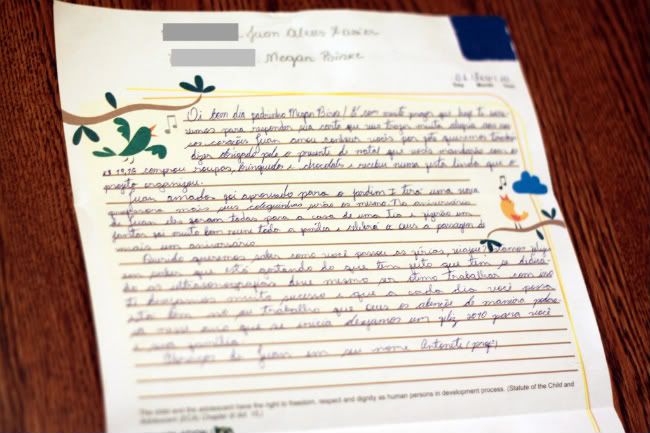 Juan Alves Xavier
Megan
Oi bom dia padrinho Megan! É com muito prazer que hoje te
mos para responder sua carta que nos trouxe muita alegria
corações Juan amou conhecer vocês por isto queremos
dizer obrigado pelo o presente de natal que vocês mandaram com o
R$ 19,76 comprou roupas, brinquedos e chocolate e recebeu numa festa linda que o
projeto organizou.
Juan amados foi aprovado para o jardim I terá uma nova
professora mais seus coleguinhas serão os mesmo. No aniversário
de Juan eles foram todos para a casa de uma Tia e fizeram um
jantar foi muito bom reunir toda a família e celebrar a Deus a passagem de
mais um aniversário.
Querido queremos saber como você passou as férias, viajou?
em saber que está gostando do que têm feito que tem se
ao ultrassonografias deve mesmo ser ótimo trabalhar com isso
te desejamos muito sucesso e que a cada dia você possa
bem no seu trabalho que Deus os abençoe de maneira
sa neste ano que se inicia desejamos um feliz 2010 para você
e sua família.
Abraços de Juan em seu nome Antonete (profª)
The child and the adolescent have the right to freedom, respect and dignity as human persons in development process. (Statute of the Child and
Adolescent (ECA) Chapter II Art. 15.)